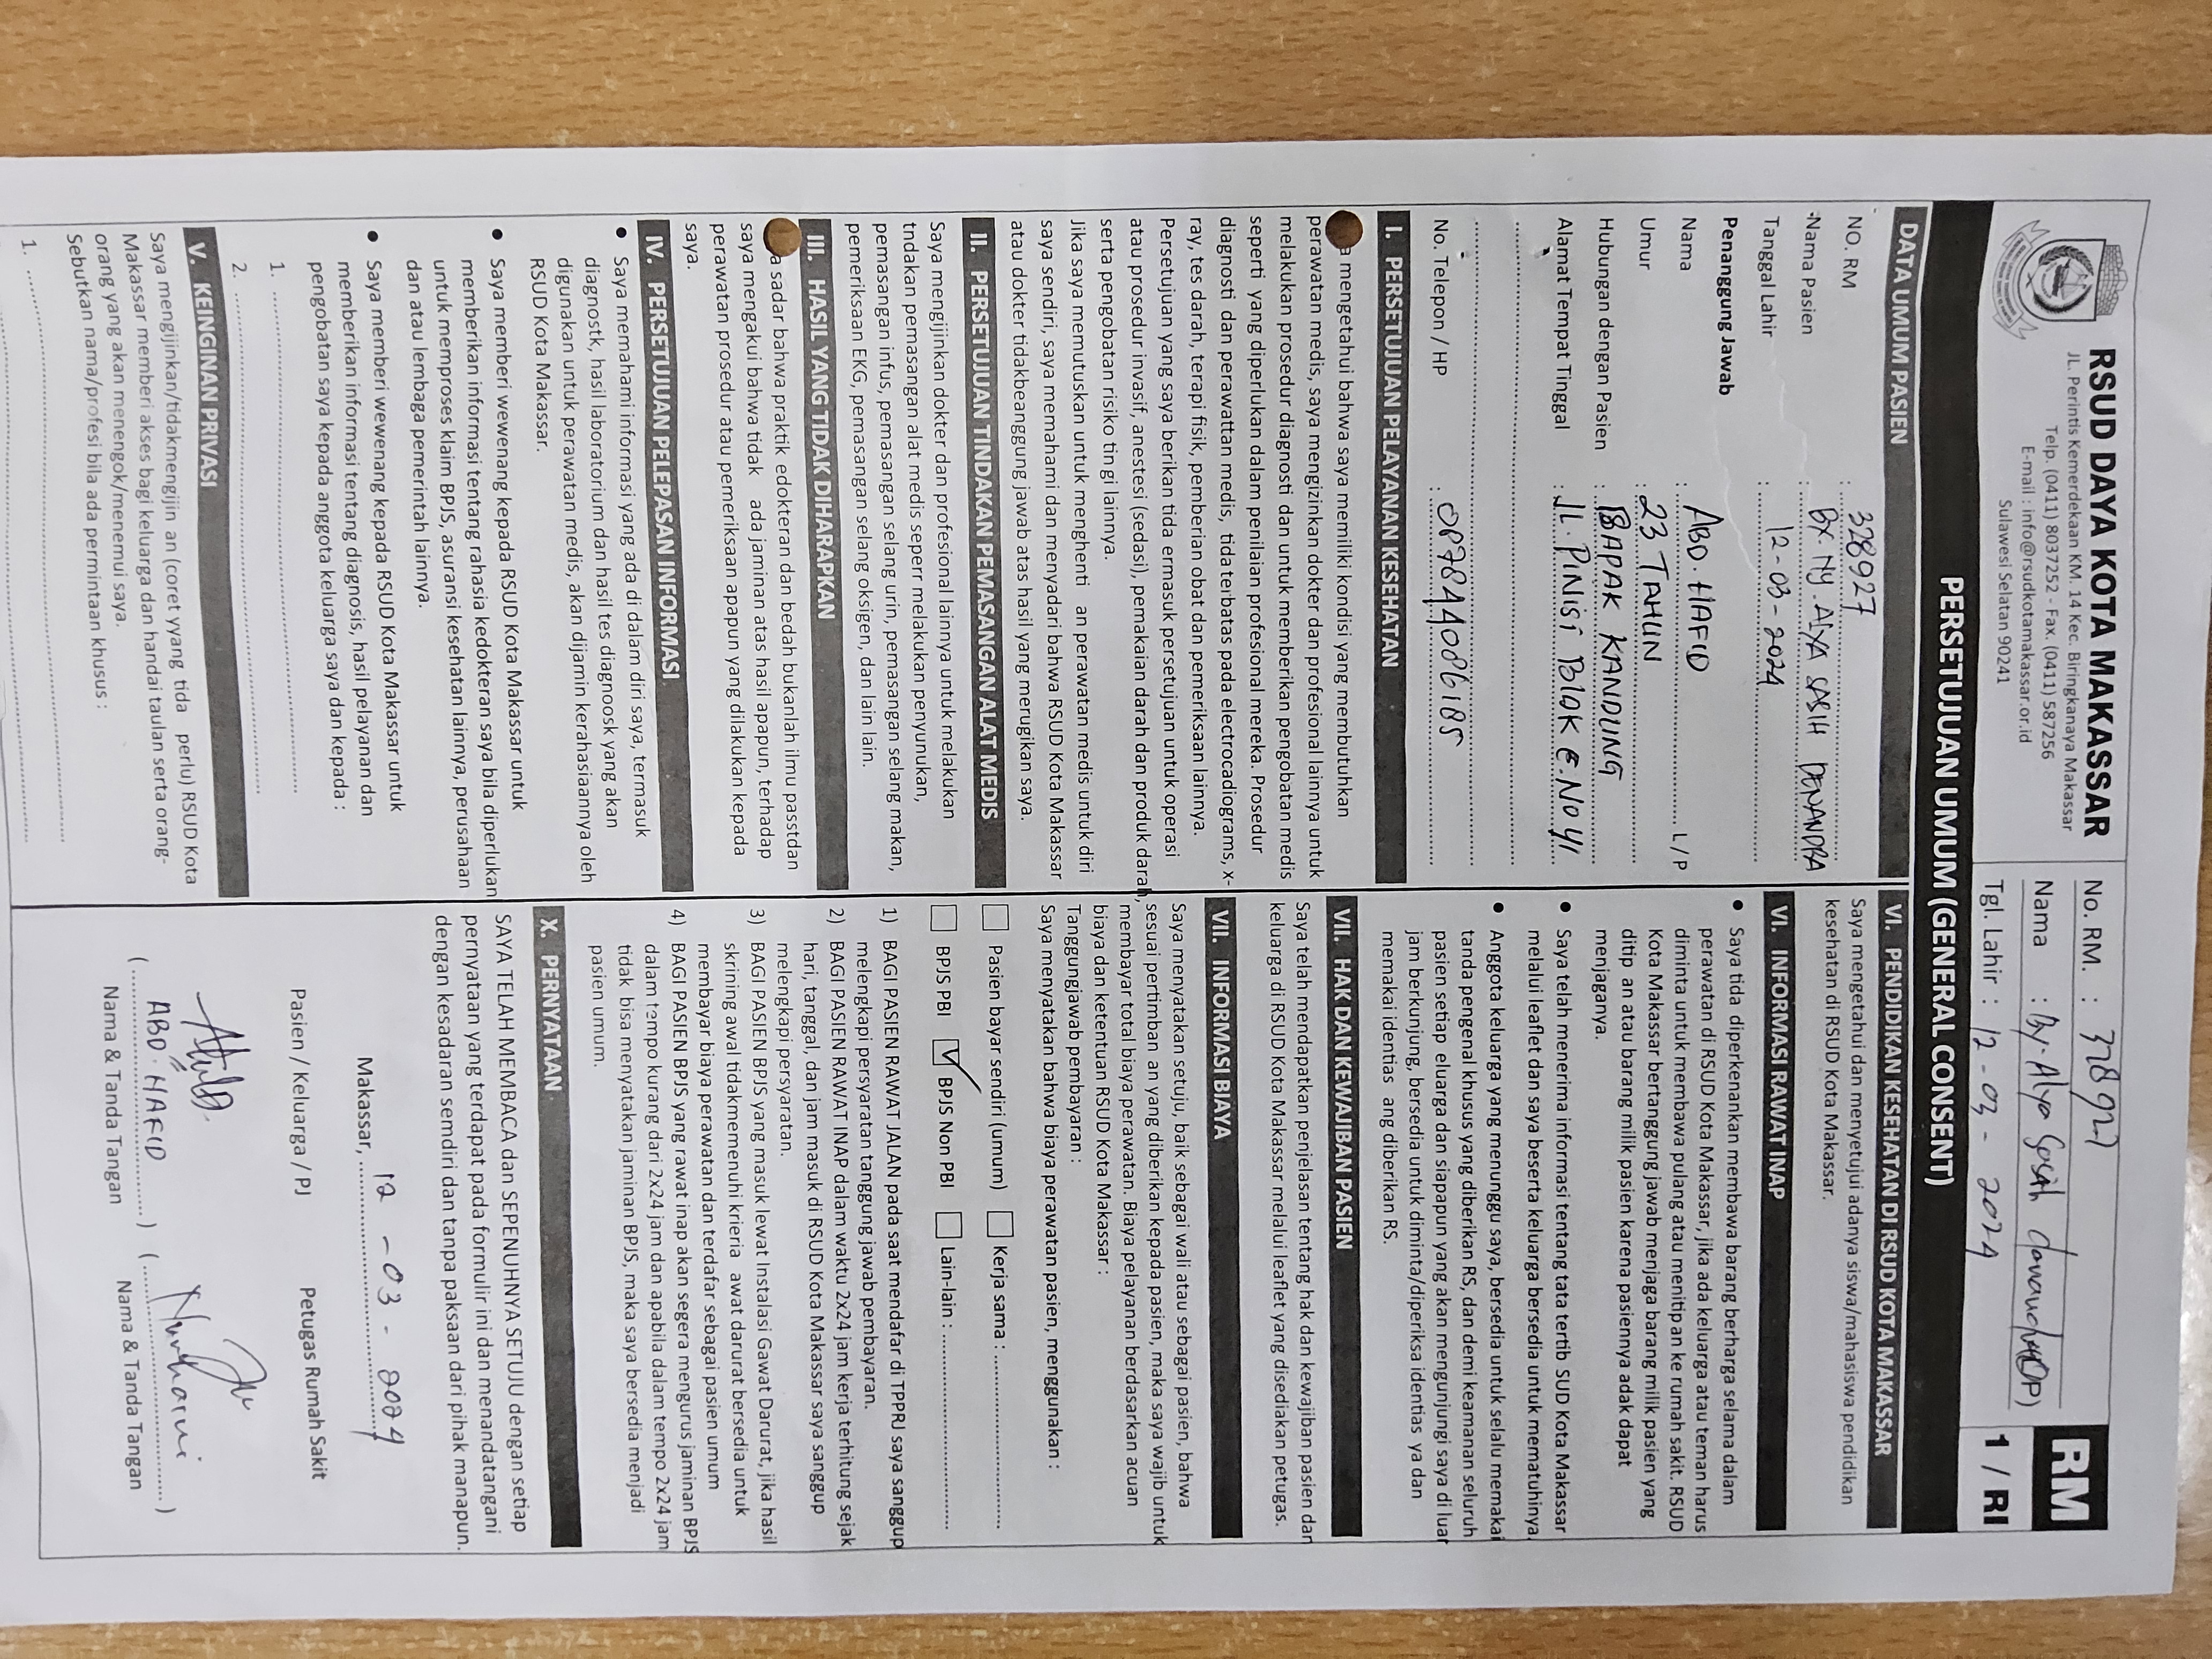 RSUD DAYA KOTA MAKASSAR
JL. Perintis Kemerdekaan KM. 14 Kec. Biringkanaya Makassar
Telp. (0411) 8037252 - Fax. (0411) 587256
E-mail : info@rsudkotamakassar.or.id
Sulawesi Selatan 90241
No. RM. : 328927
Nama : By. Alya Sasih (P)
Tgl. Lahir : 12-03-2024
RM
1 / RI
PERSETUJUAN UMUM (GENERAL CONSENT)
DATA UMUM PASIEN
NO. RM : 328927
Nama Pasien : BY. NY. ALYA SASIH DENANDRA
Tanggal Lahir : 12-03-2024
Penanggung Jawab
Nama : ABD. HAFID L / P
Umur : 23 TAHUN
Hubungan dengan Pasien : BAPAK KANDUNG
Alamat Tempat Tinggal : JL. PINISI BLOK E. NO 41
No. Telepon / HP : 087844086185
I. PERSETUJUAN PELAYANAN KESEHATAN
a mengetahui bahwa saya memiliki kondisi yang membutuhkan
perawatan medis, saya mengizinkan dokter dan profesional lainnya untuk
melakukan prosedur diagnosti dan untuk memberikan pengobatan medis
seperti yang diperlukan dalam penilaian profesional mereka. Prosedur
diagnosti dan perawattan medis, tida terbatas pada electrocadiograms, x-
ray, tes darah, terapi fisik, pemberian obat dan pemeriksaan lainnya.
Persetujuan yang saya berikan tida ermasuk persetujuan untuk operasi
atau prosedur invasif, anestesi (sedasi), pemakaian darah dan produk darah,
serta pengobatan risiko tin gi lainnya.
Jika saya memutuskan untuk menghenti an perawatan medis untuk diri
saya sendiri, saya memahami dan menyadari bahwa RSUD Kota Makassar
atau dokter tidakbeanggung jawab atas hasil yang merugikan saya.
II. PERSETUJUAN TINDAKAN PEMASANGAN ALAT MEDIS
Saya mengijinkan dokter dan profesional lainnya untuk melakukan
tndakan pemasangan alat medis seperr melakukan penyunukan,
pemasangan infus, pemasangan selang urin, pemasangan selang makan,
pemeriksaan EKG, pemasangan selang oksigen, dan lain lain.
III. HASIL YANG TIDAK DIHARAPKAN
a sadar bahwa praktik edokteran dan bedah bukanlah ilmu passtdan
saya mengakui bahwa tidak ada jaminan atas hasil apapun, terhadap
perawatan prosedur atau pemeriksaan apapun yang dilakukan kepada
saya.
IV. PERSETUJUAN PELEPASAN INFORMASI
• Saya memahami informasi yang ada di dalam diri saya, termasuk
diagnostk, hasil laboratorium dan hasil tes diagnoosk yang akan
digunakan untuk perawatan medis, akan dijamin kerahasiaannya oleh
RSUD Kota Makassar.
• Saya memberi wewenang kepada RSUD Kota Makassar untuk
memberikan informasi tentang rahasia kedokteran saya bila diperlukan
untuk memproses klaim BPJS, asuransi kesehatan lainnya, perusahaan
dan atau lembaga pemerintah lainnya.
• Saya memberi wewenang kepada RSUD Kota Makassar untuk
memberikan informasi tentang diagnosis, hasil pelayanan dan
pengobatan saya kepada anggota keluarga saya dan kepada :
1.
2.
V. KEINGINAN PRIVASI
Saya mengijinkan/tidakmengijin an (coret yyang tida perlu) RSUD Kota
Makassar memberi akses bagi keluarga dan handai taulan serta orang-
orang yang akan menengok/menemui saya.
Sebutkan nama/profesi bila ada permintaan khusus :
1.
VI. PENDIDIKAN KESEHATAN DI RSUD KOTA MAKASSAR
Saya mengetahui dan menyetujui adanya siswa/mahasiswa pendidikan
kesehatan di RSUD Kota Makassar.
VI. INFORMASI RAWAT INAP
• Saya tida diperkenankan membawa barang berharga selama dalam
perawatan di RSUD Kota Makassar, jika ada keluarga atau teman harus
diminta untuk membawa pulang atau menitipan ke rumah sakit. RSUD
Kota Makassar bertanggung jawab menjaga barang milik pasien yang
ditip an atau barang milik pasien karena pasiennya adak dapat
menjaganya.
• Saya telah menerima informasi tentang tata tertib SUD Kota Makassar
melalui leaflet dan saya beserta keluarga bersedia untuk mematuhinya.
• Anggota keluarga yang menunggu saya, bersedia untuk selalu memakai
tanda pengenal khusus yang diberikan RS, dan demi keamanan seluruh
pasien setiap eluarga dan siapapun yang akan mengunjungi saya di luar
jam berkunjung, bersedia untuk diminta/diperiksa identias ya dan
memakai identias ang diberikan RS.
VII. HAK DAN KEWAJIBAN PASIEN
Saya telah mendapatkan penjelasan tentang hak dan kewajiban pasien dan
keluarga di RSUD Kota Makassar melalui leaflet yang disediakan petugas.
VII. INFORMASI BIAYA
Saya menyatakan setuju, baik sebagai wali atau sebagai pasien, bahwa
sesuai pertimban an yang diberikan kepada pasien, maka saya wajib untuk
membayar total biaya perawatan. Biaya pelayanan berdasarkan acuan
biaya dan ketentuan RSUD Kota Makassar :
Tanggungjawab pembayaran :
Saya menyatakan bahwa biaya perawatan pasien, menggunakan :
Pasien bayar sendiri (umum) Kerja sama :
BPJS PBI BPJS Non PBI Lain-lain :
1) BAGI PASIEN RAWAT JALAN pada saat mendafar di TPPRJ saya sanggup
melengkapi persyaratan tanggung jawab pembayaran.
2) BAGI PASIEN RAWAT INAP dalam waktu 2x24 jam kerja terhitung sejak
hari, tanggal, dan jam masuk di RSUD Kota Makassar saya sanggup
melengkapi persyaratan.
3) BAGI PASIEN BPJS yang masuk lewat Instalasi Gawat Darurat, jika hasil
skrining awal tidakmemenuhi krieria awat darurat bersedia untuk
membayar biaya perawatan dan terdafar sebagai pasien umum
4) BAGI PASIEN BPJS yang rawat inap akan segera mengurus jaminan BPJS
dalam tempo kurang dari 2x24 jam dan apabila dalam tempo 2x24 jam
tidak bisa menyatakan jaminan BPJS, maka saya bersedia menjadi
pasien umum.
X. PERNYATAAN
SAYA TELAH MEMBACA dan SEPENUHNYA SETUJU dengan setiap
pernyataan yang terdapat pada formulir ini dan menandatangani
dengan kesadaran semdiri dan tanpa paksaan dari pihak manapun.
Makassar, 12-03-2024
Pasien / Keluarga / PJ Petugas Rumah Sakit
(ABD. HAFID) (Nurhaeni)
Nama & Tanda Tangan Nama & Tanda Tangan